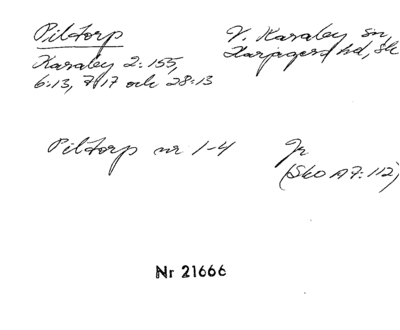 Piltorp
V. Karaby sn,
Karaby 2:155,
Harjagers hd, Sk
6:13, 7:17 och 28:13
Piltorp nr 1-4
Jr
(Sko A7:112)
Nr 21666